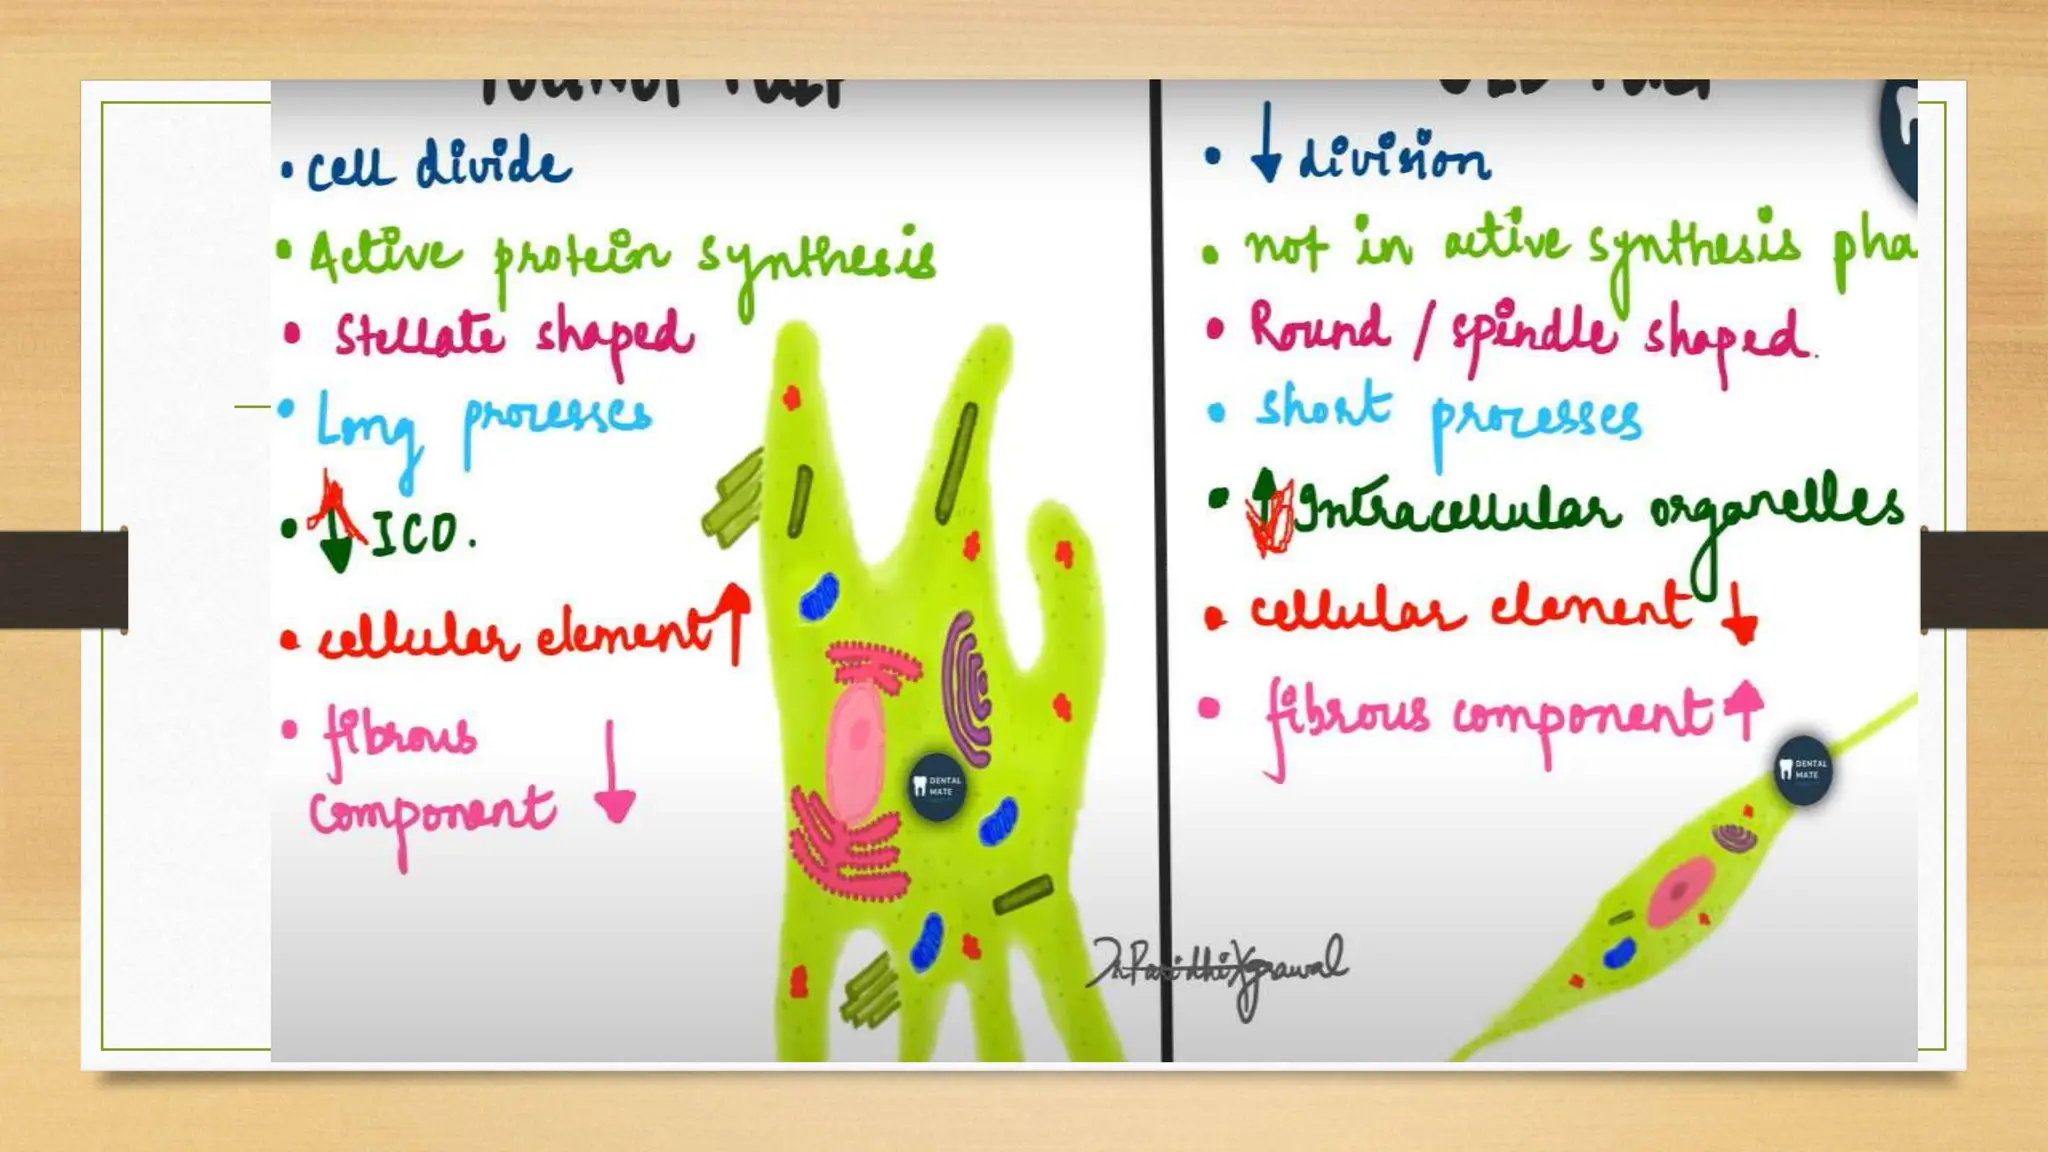 YOUNG PULP
• cell divide
• Active protein synthesis
• Stellate shaped
• Long processes
• ↓ ICO.
• cellular element ↑
• fibrous
component ↓
OLD PULP
• ↓ division
• not in active synthesis pha
• Round / spindle shaped.
• short processes
• ↑ Intracellular organelles
• cellular element ↓
• fibrous component ↑
DENTAL
MATE
DENTAL
MATE
Dr Paridhi Agrawal